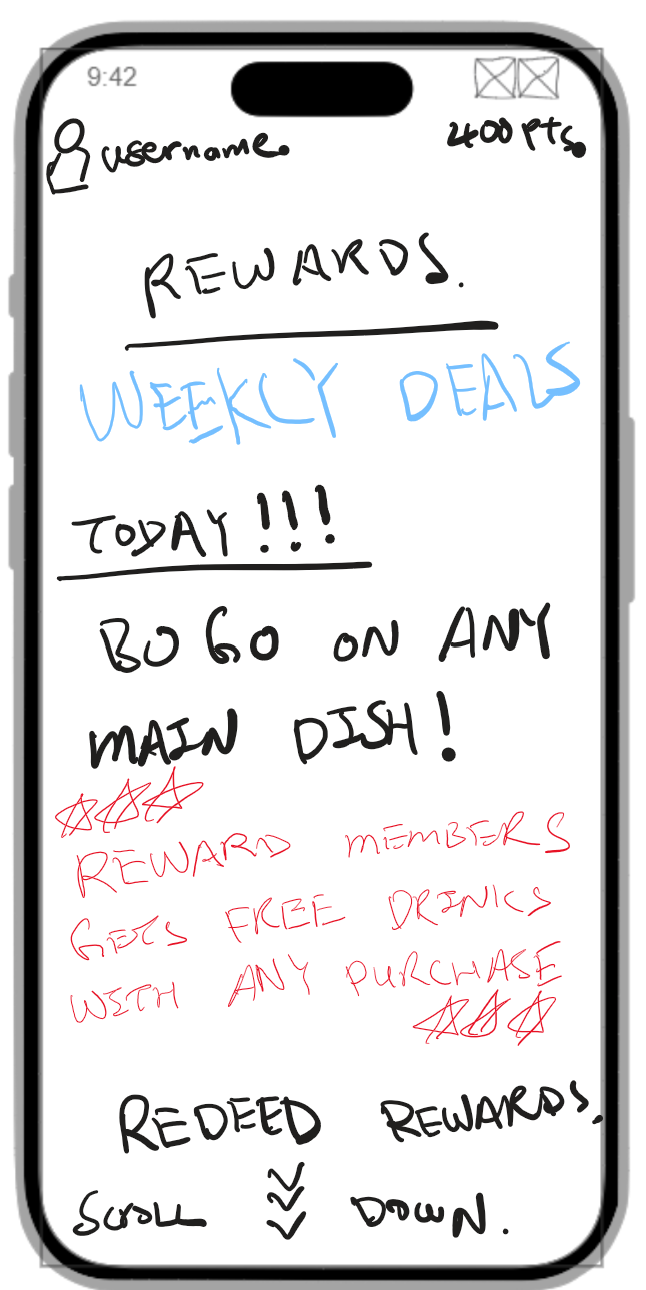 9:42
username.
400 pts.
REWARDS.
WEEKLY DEALS
TODAY!!!
BOGO ON ANY
MAIN DISH!
REWARD MEMBERS
GETS FREE DRINKS
WITH ANY PURCHASE
REDEED REWARDS.
SCROLL DOWN.